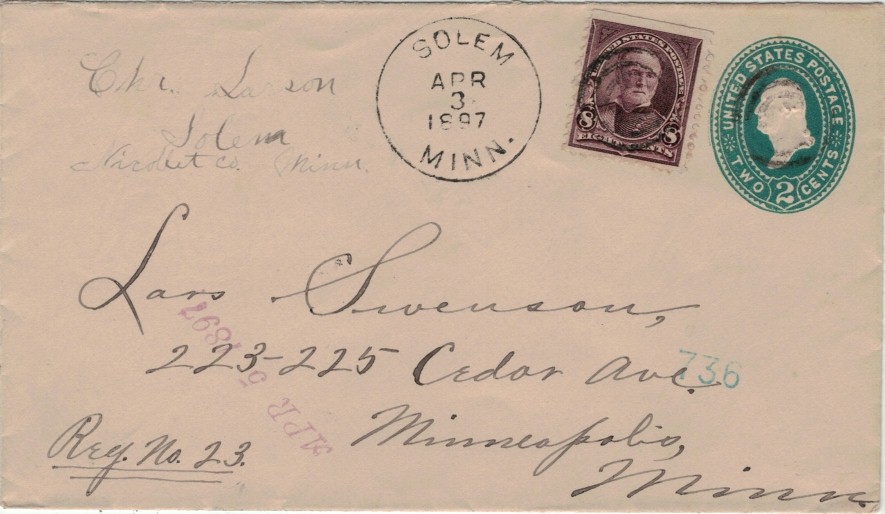 Chr. Larson
Solem
Nicollet co. Minn.
SOLEM
APR
3
1897
MINN.
UNITED STATES POSTAGE
8 8
EIGHT CENTS
UNITED STATES POSTAGE
TWO 2 CENTS
Lars Swenson,
223-225 Cedar Ave.
736
APR 5 1897
Minneapolis,
Minn.
Reg. No. 23.